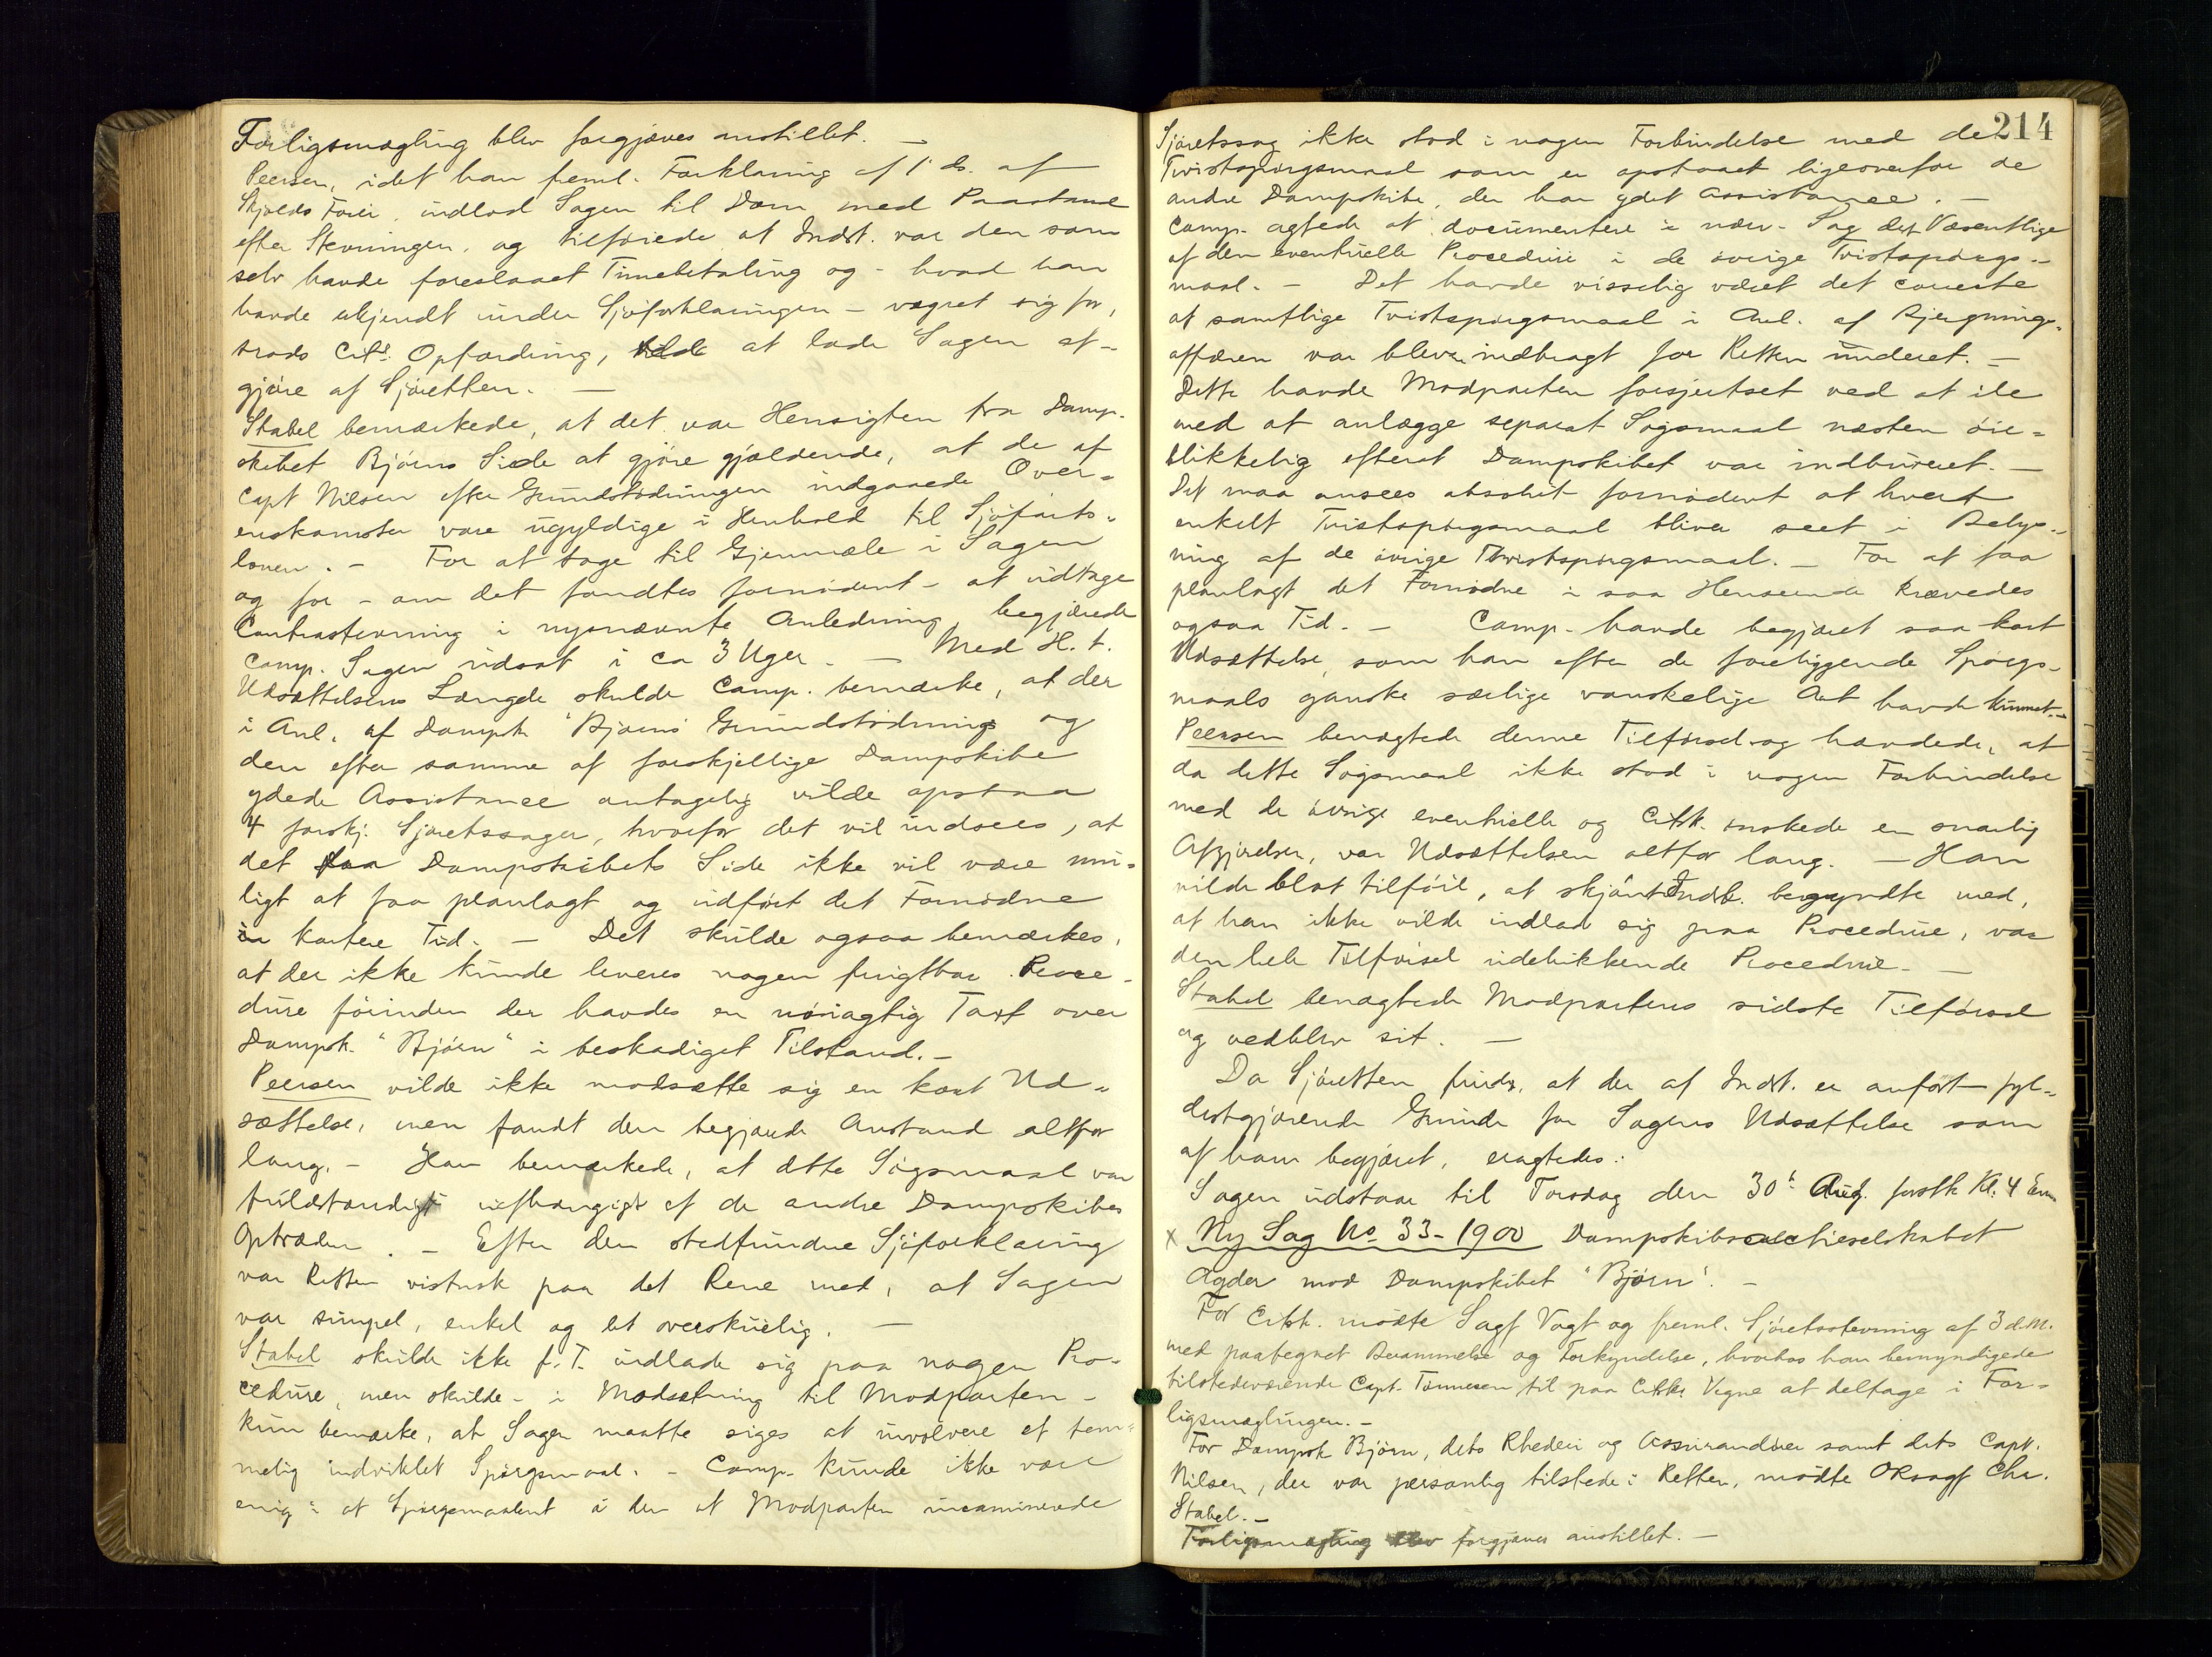 Forligsmægling blev forgjæves anstillet. —
Peersen, idet han freml. Forklaring af 1' ds. af
Skjolds Fører, indlod Sagen til Dom med Paastand
efter Stevningen, og tilførede at Indst. var den som
selv havde foreslaaet Timebetaling og - hvad han
havde erkjendt under Sjøforklaringen - vægret sig for,
trods Cits. Opfordring, at lade Sagen af-
gjøre af Sjøretten. —
Stabel bemærkede, at det var Hensigten fra Damp-
skibet Bjørns Side at gjøre gjældende, at de af
Capt Nilsen efter Grundstødningen indgaaede Over-
enskomster vare ugyldige i Henhold til Sjøfarts-
loven. - For at tage til Gjenmæle i Sagen
og for - om det fandtes fornødent - at udtage
Contrastevning i nysnævnte Anledning begjærede
Comp. Sagen udsat i ca 3 Uger. — Med H. t.
Udsættelsens Længde skulde Comp. bemærke, at der
i Anl. af Dampsk "Bjørns" Grundstødning og
den efter samme af forskjellige Dampskibe
ydede Assistance antagelig vilde opstaa
4 forskj. Sjøretssager, hvorfor det vil indsees, at
det fra Dampskibets Side ikke vil være mu-
ligt at faa planlagt og udført det Fornødne
in kortere Tid. — Det skulde ogsaa bemærkes,
at der ikke kunde leveres nogen frugtbar Proce-
dure förinden der havdes en nøiagtig Taxt over
Dampsk. "Bjørn" i beskadiget Tilstand. -
Peersen vilde ikke modsætte sig en kort Ud-
sættelse, men fandt den begjærede Anstand altfor
lang. - Han bemærkede, at dette Søgsmaal var
fuldstændigt uafhængigt af de andre Dampskibes
Optræden. - Efter den stedfundne Sjøforklaring
var Retten vistnok paa det Rene med, at Sagen
var simpel, enkel og let overskuelig. —
Stabel skulde ikke f. T. indlade sig paa nogen Pro-
cedure, men skulde - i Modsætning til Modparten -
kun bemærke, at Sagen maatte siges at involvere et tem-
melig indviklet Spørgsmaal. - Comp. kunde ikke være
enig i at Spørgsmaalet i den af Modparten incaminerede
214
Sjøretssag ikke stod i nogen Forbindelse med de
Tvistspørgsmaal som er opstaaet ligeoverfor de
andre Dampskibe, der har ydet Assistance. -
Comp. agtede at documentere i nærv. Sag det Væsentlige
af den eventuelle Procedure i de øvrige Tvistspørgs-
maal. - Det havde visselig været det correcte
at samtlige Tvistspørgsmaal i Anl. af Bjergnings-
affæren var bleven indbragt for Retten underet. -
Dette havde Modparten forspildet ved at ile
med at anlægge separat Søgsmaal næsten øie-
blikkelig efterat Dampskibet var indbugseret. -
Det maa ansees absolut fornødent at hvert
enkelt Tvistspørgsmaal bliver seet i Belys-
ning af de øvrige Tvistspørgsmaal. - For at faa
planlagt det Fornødne i saa Henseende krævedes
ogsaa Tid. - Comp. havde begjæret saa kort
Udsættelse som han efter de foreliggende Spørgs-
maals ganske særlige vanskelige Art havde kunnet. -
Peersen benægtede denne Tilførsel og hævdede, at
da dette Søgsmaal ikke stod i nogen Forbindelse
med de øvrige eventuelle og Citsk. ønskede en snarlig
Afgjørelse, var Udsættelsen altfor lang. - Han
vilde blot tilføie, at skjønt Indst. begyndte med,
at han ikke vilde indlade sig paa Procedure, var
den hele Tilførsel udelukkende Procedure. -
Stabel benægtede Modpartens sidste Tilførsel
og vedblev sit. -
Da Sjøretten finder, at der af Indst. er anført fyl-
destgjørende Grunde for Sagens Udsættelse som
af ham begjæret, eragtedes:
Sagen udstaar til Torsdag den 30' Aug. førstk Kl. 4 Em
x Ny Sag No 33-1900 Dampskibsactieselskabet
Agder mod Dampskibet "Bjørn". -
For Citsk. mødte Sagf Vogt og freml. Sjøretsstevning af 3 d.M.
med paategnet Berammelse og Forkyndelse, hvorhos han bemyndigede
tilstedeværende Capt. Tønnesen til paa Citsks Vegne at deltage i For-
ligsmæglingen. -
For Dampsk Bjørn, dets Rhederi og Assurandører samt dets Capt.
Nilsen, der var personlig tilstede i Retten, mødte ORsagf Chr.
Stabel. -
Forligsmægling blev forgjæves anstillet. -